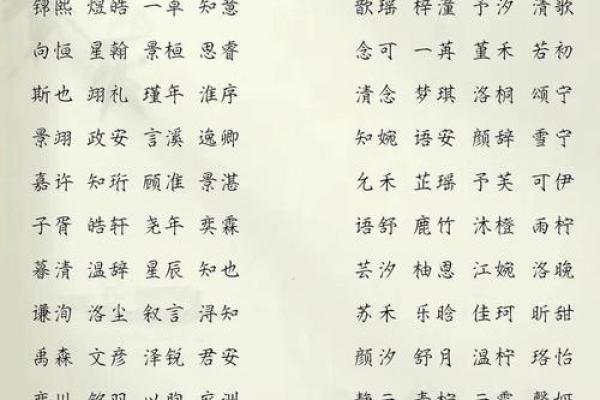 锦熙 煜皓 歌瑶 梓潼 予汐 清歌
向恒 星翰 景桓 思睿 念可 一苒 堇禾 若初
斯也 翊礼 瑾年 淮序 清念 梦琪 洛桐 颂宁
景翊 政安 言溪 逸卿 知婉 语安 颜辞 雪宁
嘉许 知珩 顾淮 景湛 允禾 芷瑶 予芙 可伊
子胥 皓轩 尧年 奕霖 语舒 鹿竹 沐橙 雨柠
暮清 温辞 星辰 知也 芸汐 柚恩 江婉 洛晚
谦洵 洛尘 叙言 浔知 苏禾 乐晗 佳珂 昕甜
禹森 文彦 泽锐 君安 颜汐 舒月 温柠 珞怡